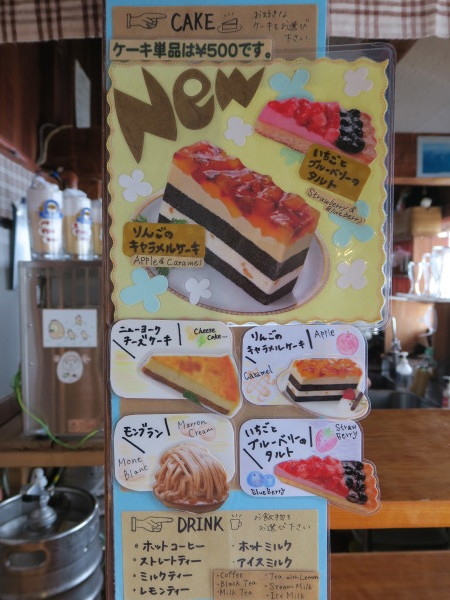 CAKE
お好きな
ケーキをお選び
下さい
ケーキ単品は¥500です。
New
いちごと
ブルーベリーの
タルト
Strawberry &
Blueberry
りんごの
キャラメルケーキ
Apple & Caramel
ニューヨーク
チーズケーキ
Cheese
Cake...
りんごの
キャラメルケーキ
Apple
Caramel
モンブラン
Marron
Cream
Mont
Blank
いちごと
ブルーベリーの
タルト
Straw
Berry
BlueBerry
DRINK
お飲物を
お選び下さい
・ホットコーヒー
・ストレートティー
・ミルクティー
・レモンティー
・ホットミルク
・アイスミルク
・Coffee
・Black Tea
・Milk Tea
・Tea with Lemon
・Steam Milk
・Ice Milk